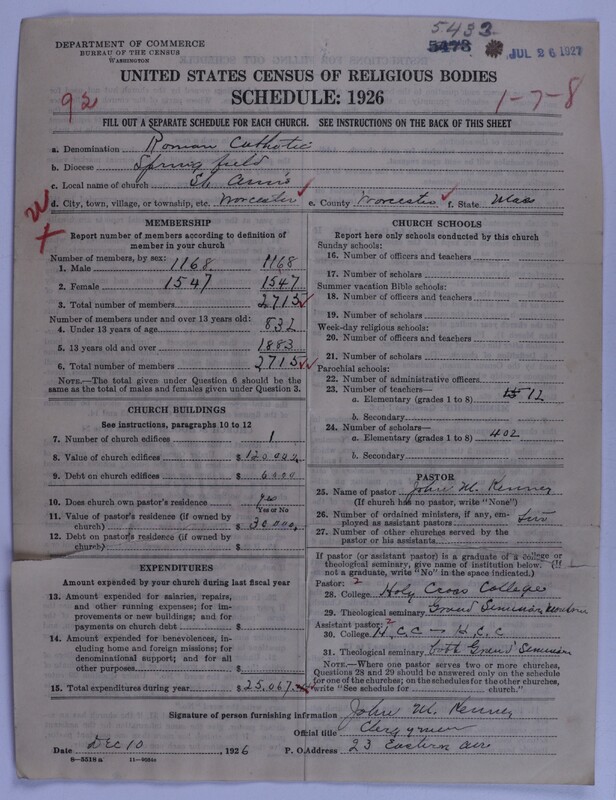 5433
5473
JUL 26 1927
DEPARTMENT OF COMMERCE
BUREAU OF THE CENSUS
WASHINGTON
UNITED STATES CENSUS OF RELIGIOUS BODIES
SCHEDULE: 1926
92
1-7-8
FILL OUT A SEPARATE SCHEDULE FOR EACH CHURCH. SEE INSTRUCTIONS ON THE BACK OF THIS SHEET
a. Denomination Roman Catholic
b. Diocese Springfield
c. Local name of church St. Ann's
d. City, town, village, or township, etc. Worcester e. County Worcester f. State Mass
MEMBERSHIP
Report number of members according to definition of member in your church
Number of members, by sex:
1. Male 1168 1168
2. Female 1547 1547
3. Total number of members 2715
Number of members under and over 13 years old:
4. Under 13 years of age 832
5. 13 years old and over 1883
6. Total number of members 2715
NOTE.—The total given under Question 6 should be the same as the total of males and females given under Question 3.
CHURCH BUILDINGS
See instructions, paragraphs 10 to 12
7. Number of church edifices 1
8. Value of church edifices $ 120,000
9. Debt on church edifices $ 6000
10. Does church own pastor's residence yes
Yes or No
11. Value of pastor's residence (if owned by church) $ 30,000
12. Debt on pastor's residence (if owned by church) $
EXPENDITURES
Amount expended by your church during last fiscal year
13. Amount expended for salaries, repairs, and other running expenses; for improvements or new buildings; and for payments on church debt $
14. Amount expended for benevolences, including home and foreign missions; for denominational support; and for all other purposes $
15. Total expenditures during year $ 25,067
CHURCH SCHOOLS
Report here only schools conducted by this church
Sunday schools:
16. Number of officers and teachers
17. Number of scholars
Summer vacation Bible schools:
18. Number of officers and teachers
19. Number of scholars
Week-day religious schools:
20. Number of officers and teachers
21. Number of scholars
Parochial schools:
22. Number of administrative officers
23. Number of teachers—
a. Elementary (grades 1 to 8) 12
b. Secondary
24. Number of scholars—
a. Elementary (grades 1 to 8) 402
b. Secondary
PASTOR
25. Name of pastor John M. Kenney
(If church has no pastor, write "None")
26. Number of ordained ministers, if any, employed as assistant pastors two
27. Number of other churches served by the pastor or his assistants
If pastor (or assistant pastor) is a graduate of a college or theological seminary, give name of institution below. (If not a graduate, write "No" in the space indicated.)
Pastor: 2
28. College Holy Cross College
29. Theological seminary Grand Seminary Montreal
Assistant pastor: 2
30. College H.C.C — H.C.C
31. Theological seminary both Grand Seminary
NOTE.—Where one pastor serves two or more churches, Questions 28 and 29 should be answered only on the schedule for one of the churches; on the schedules for the other churches, write "See schedule for church."
Signature of person furnishing information John M. Kenney
Official title Clergyman
Date DEC 10, 1926 P. O. Address 23 Eastern Ave
8-5518a